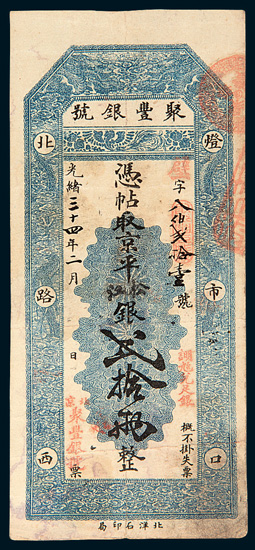 聚豐銀號
燈市口
北路西
字八佰弍拾壹號
概不掛失票
憑帖取京平松江銀弍拾兩整
光緒三十四年二月 日
聚豐銀號票
北洋石印局